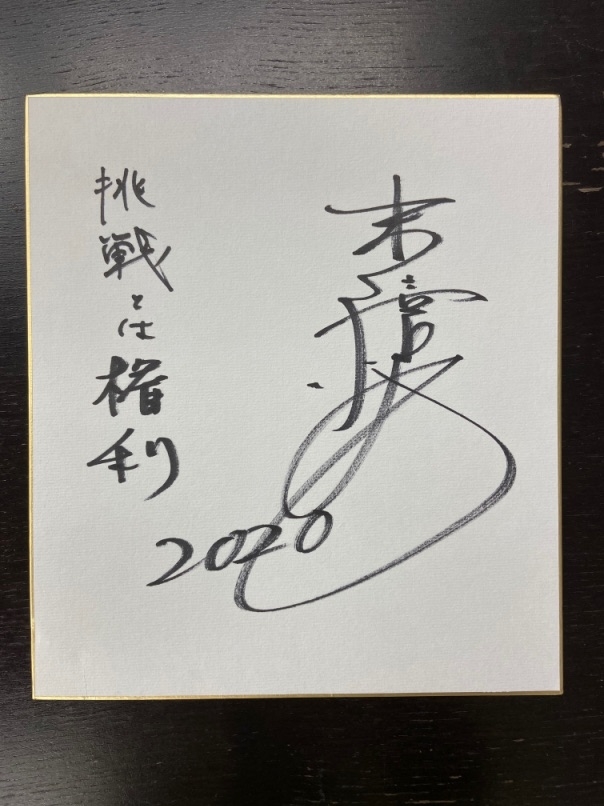 末續
挑戦とは権利
2020